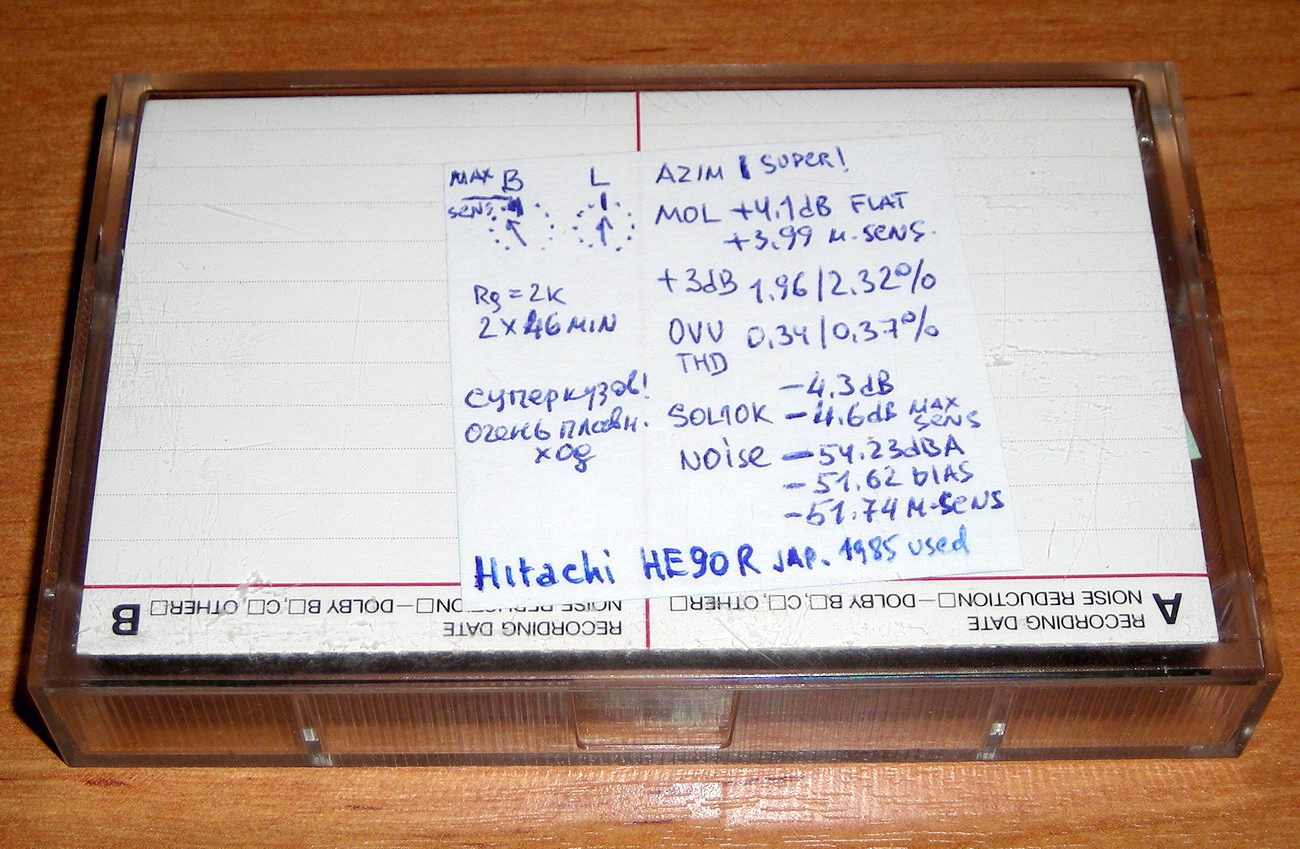 MAX B L
SENS
Rg = 2K
2 x 46 MIN
СУПЕРКУЗОВ!
ОЧЕНЬ ПЛАВН.
ХОД
AZIM SUPER!
MOL +4.1dB FLAT
+3.99 M-SENS.
+3dB 1.96/2.32%
OVU 0.34/0.37%
THD
-4.3dB
SOL10K -4.6dB MAX SENS
NOISE -54.23dBA
-51.62 BIAS
-51.74 M-SENS
Hitachi HE90R JAP. 1985 used
B NOISE REDUCTION—DOLBY B□,C□, OTHER□
RECORDING DATE
A NOISE REDUCTION□—DOLBY B□,C□, OTHER□
RECORDING DATE